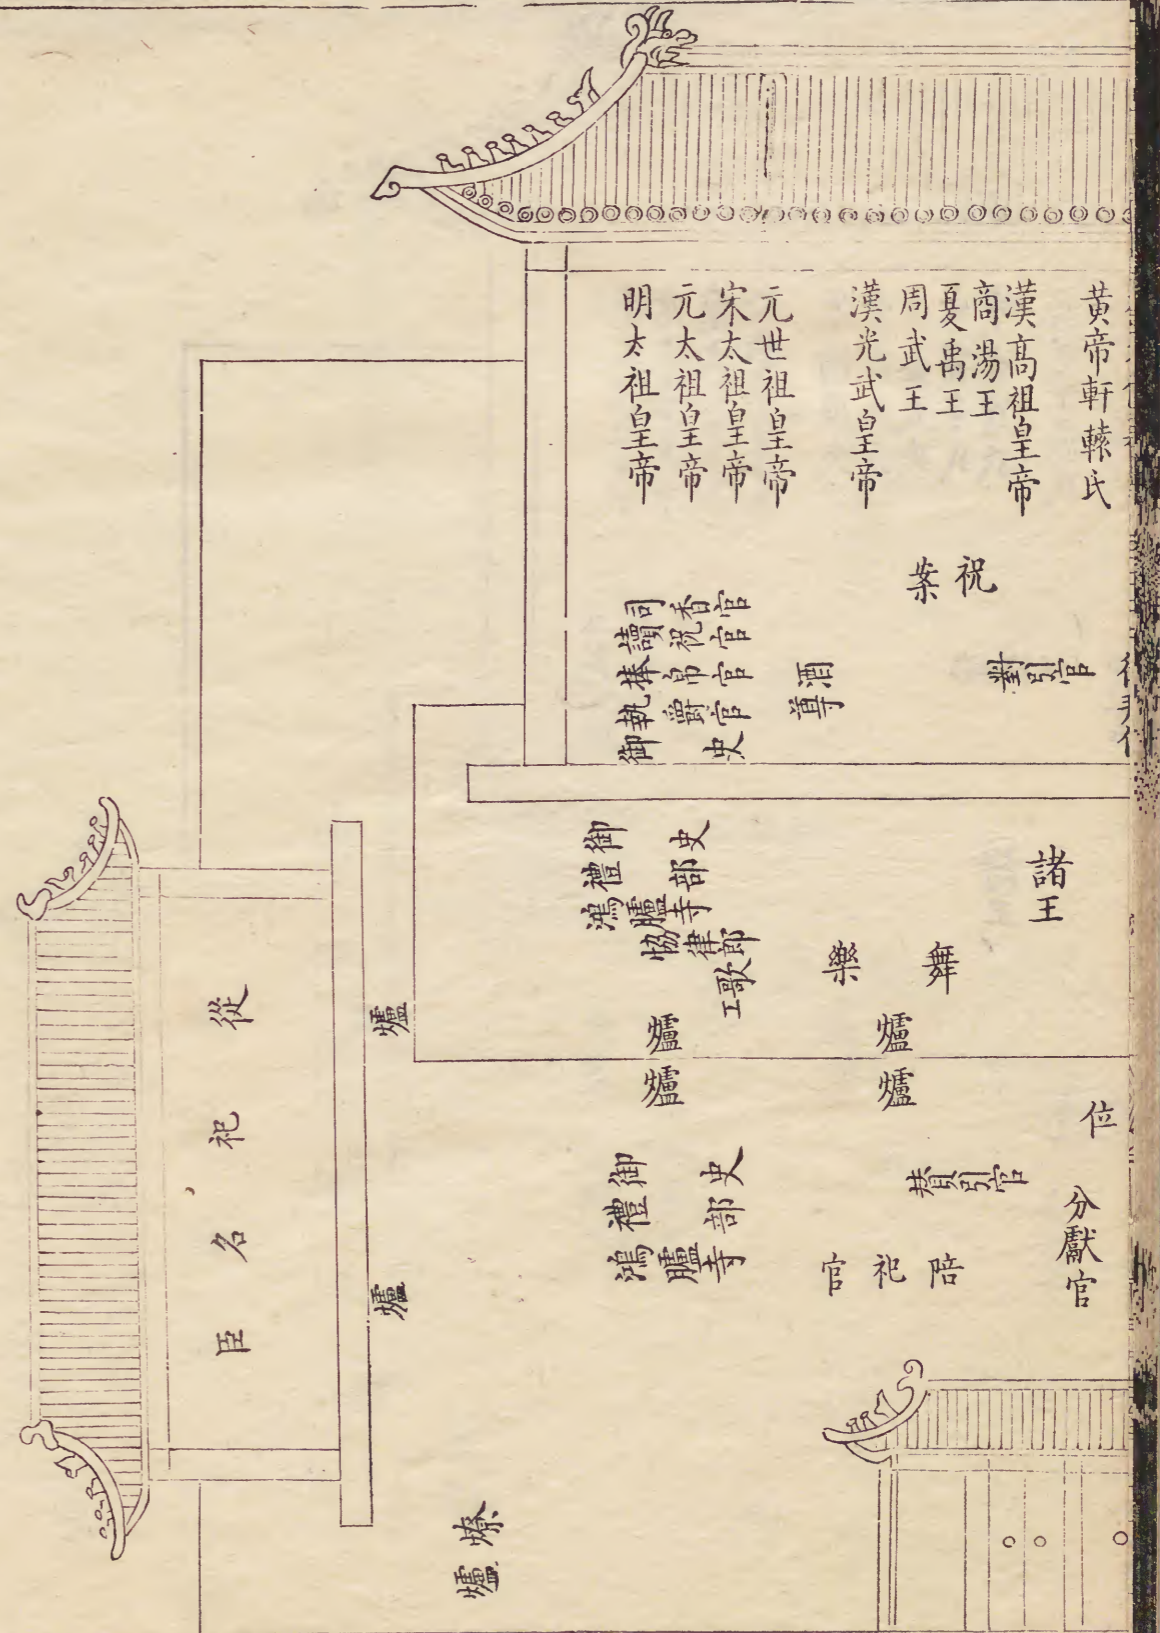 黄帝軒轅氏
漢髙祖皇帝
商湯王
夏禹王
周武王
漢光武皇帝
元世祖皇帝
宋太祖皇帝
元太祖皇帝
明太祖皇帝
祝案
對引官
酒尊
司香官
讀祝官
捧帛官
執爵官
御史
諸王
舞
樂
御史
禮部
鴻臚寺
協律郎
歌工
爐
爐
爐
爐
位
分獻官
贊引官
陪祀官
御史
禮部
鴻臚寺
從祀名臣
爐
爐
燎爐